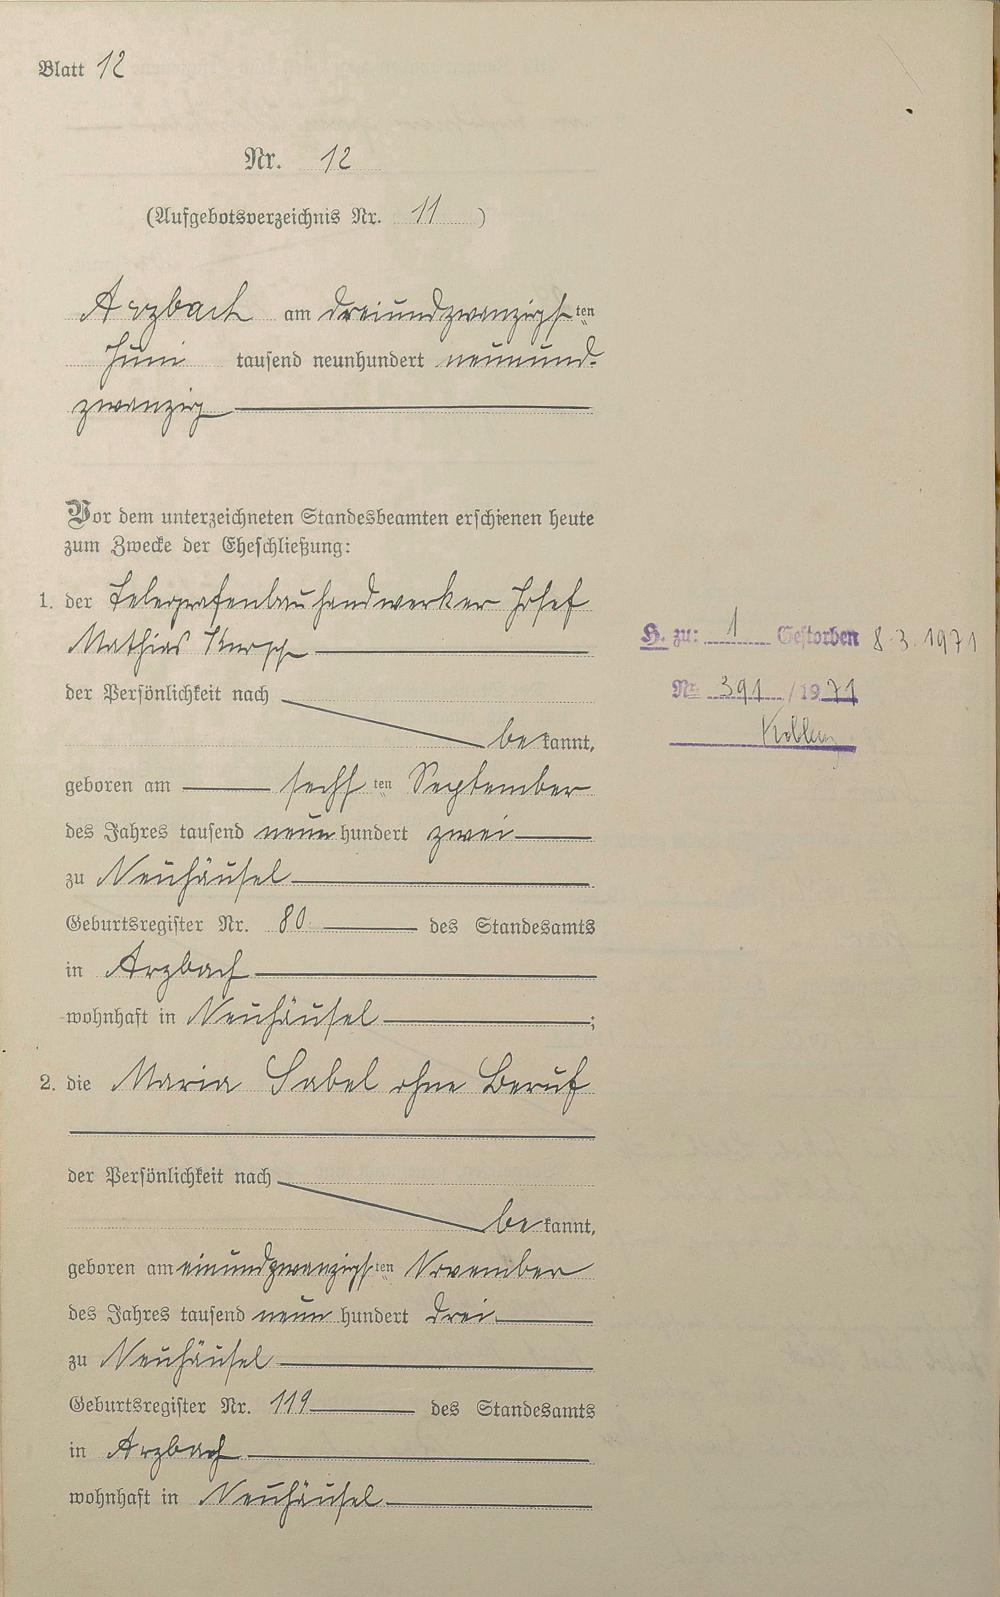 Blatt 12
Nr. 12
(Aufgebotsverzeichnis Nr. 11 )
Arzbach am dreiundzwanzigsten
Juni tausend neunhundert neunund-
zwanzig
Vor dem unterzeichneten Standesbeamten erschienen heute
zum Zwecke der Eheschließung:
1. der Telegrafenbauhandwerker Josef
Mathias
der Persönlichkeit nach
bekannt,
geboren am sechsten September
des Jahres tausend neunhundert zwei
zu Neuhäusel
Geburtsregister Nr. 80 des Standesamts
in Arzbach
wohnhaft in Neuhäusel ;
2. die Maria Sabel ohne Beruf
der Persönlichkeit nach
bekannt,
geboren am einundzwanzigsten November
des Jahres tausend neunhundert drei
zu Neuhäusel
Geburtsregister Nr. 119 des Standesamts
in Arzbach
wohnhaft in Neuhäusel
H. zu: 1 Gestorben 8.3.1971
Nr. 391 /1971
Koblenz